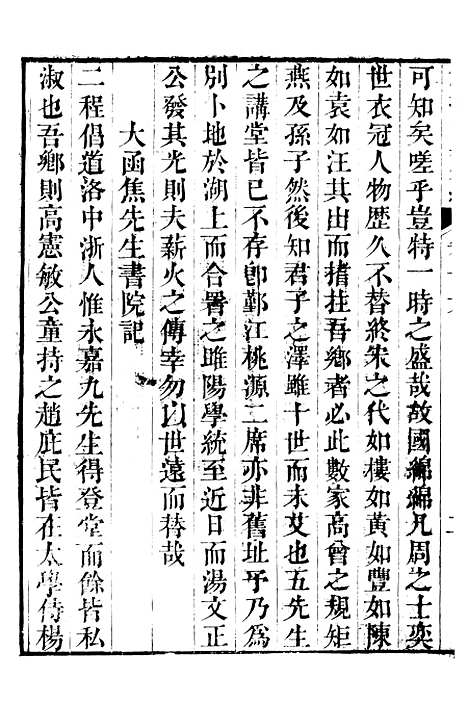 可知矣嗟乎豈特一時之盛哉故國綿綿凡周之士奕
世衣冠人物歷久不替終宋之代如樓如黃如豐如陳
如袁如汪其由而搘拄吾鄉者必此數家高曾之規矩
燕及孫子然後知君子之澤雖十世而未艾也五先生
之講堂皆已不存卽鄞江桃源二席亦非舊址乎乃爲
別卜地於湖上而合署之睢陽學統至近日而湯文正
公發其光則夫薪火之傳幸勿以世遠而替哉
大函焦先生書院記
二程倡道洛中浙人惟永嘉九先生得登堂而餘皆私
淑也吾鄉則高憲敏公童持之趙庇民皆在太學侍楊